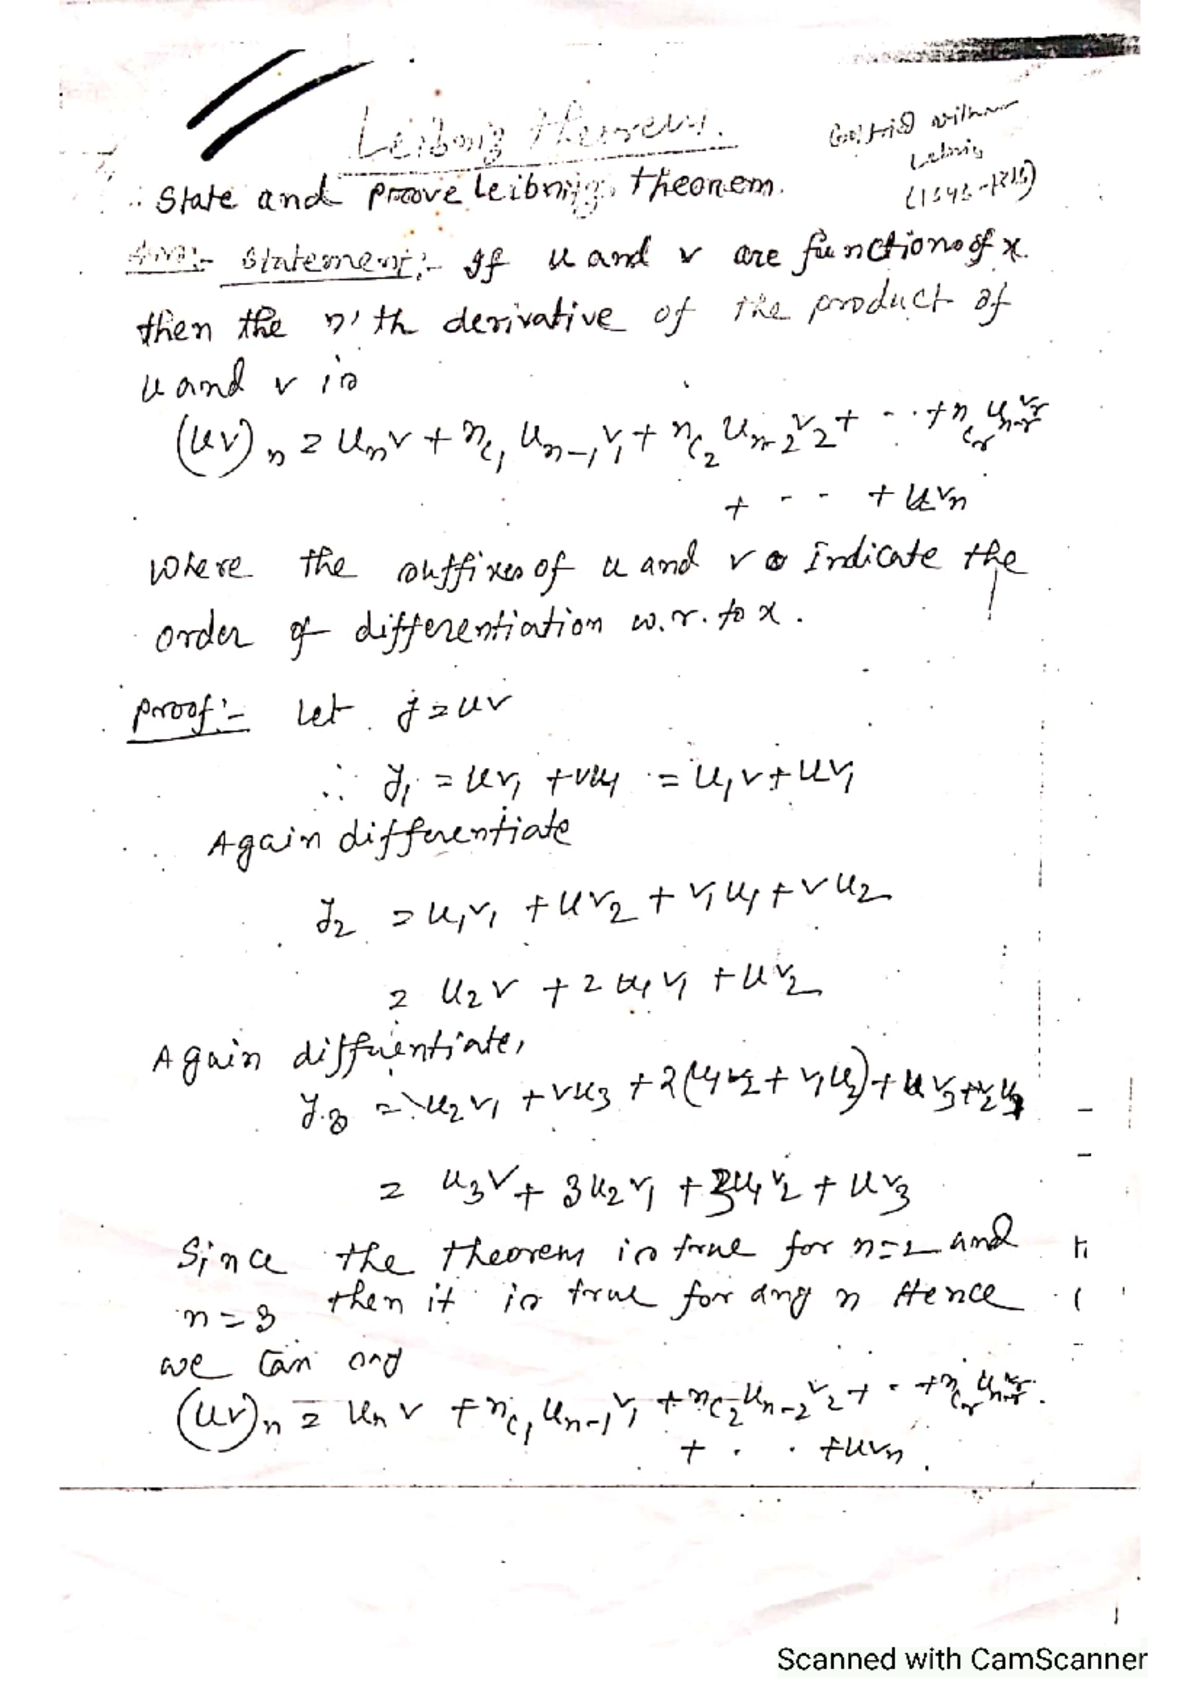 Leibniz theorem.
(1646-1716)
State and proove Leibnitz theorem.
Ans:- Statement:- If u and v are functions of x.
then the n'th derivative of the product of
u and v is
(uv)n = unv + nc1 un-1 v1 + nc2 un-2 v2 + - .. + ncr un-r vr
+ - - - + uvn
Where the suffixes of u and v indicate the
order of differentiation w.r. to x.
proof:- Let y = uv
∴ y1 = uv1 + vu1 = u1v + uv1
Again differentiate
y2 = u1v1 + uv2 + v1u1 + vu2
= u2v + 2u1v1 + uv2
Again differentiate,
y3 = u2v1 + vu3 + 2(u1v2 + v1u2) + uv3 + v2u1
= u3v + 3u2v1 + 3u1v2 + uv3
Since the theorem is true for n=2 and
n=3 then it is true for any n Hence
we can say
(uv)n = unv + nc1 un-1 v1 + nc2 un-2 v2 + - .. + ncr un-r vr.
+ . . + uvn.
Scanned with CamScanner